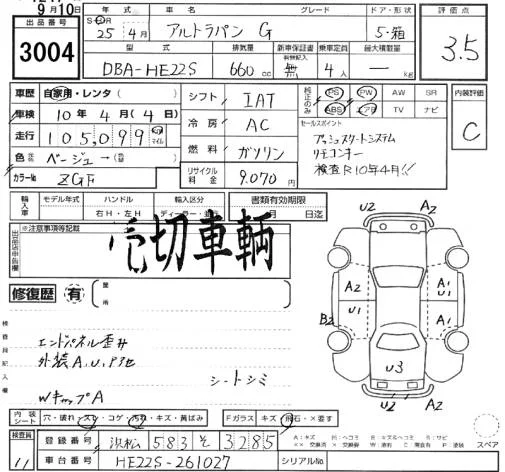 9月10日
出品番号 3004
年式 車名 グレード ドア・形状
S・H 25年 4月 アルトラパン G 5・箱
型式 排気量 新車保証書 有無記入 乗車定員 最大積載量
DBA-HE22S 660cc 無 4人 ― kg
評価点
3.5
内装評価
C
車歴 自家用・レンタ ( )
車検 10年 4月 (4日)
走行 105,099 マイル
色 ベージュ→ ( )
カラーNo ZGF
シフト IAT
冷房 AC
燃料 ガソリン
リサイクル料金 9.070円
純正のみ PS PW AW SR
ABS エアB TV ナビ
セールスポイント
プッシュスタートシステム
リモコンキー
検査R10年4月!!
輸入車 モデル年式 ハンドル 輸入区分 書類有効期限
年 右H・左H ディーラー・並行 月 日迄
出品店申告欄 ※注意事項等記載
売切車輌
修復歴 有 箇所
検査員記入欄
エンドパネル歪み
外装A,U,P他
シートシミ
WキャップA
U2 A2
A2 A1 U1
B2 U1 A1
U3
U2 A2
内装シート 穴・破れ・スレ・コゲ・汚れ・キズ・黄ばみ Fガラス キズ・飛石・×要す
スペア
A:キズ U:ヘコミ B:キズ&ヘコミ S:サビ
××交換済 ×要交換 W:波村 C:腐食有 P:塗装
検査員 11
登録番号 浜松 583 そ 3285
車台番号 HE22S-261027 シリアルNo.